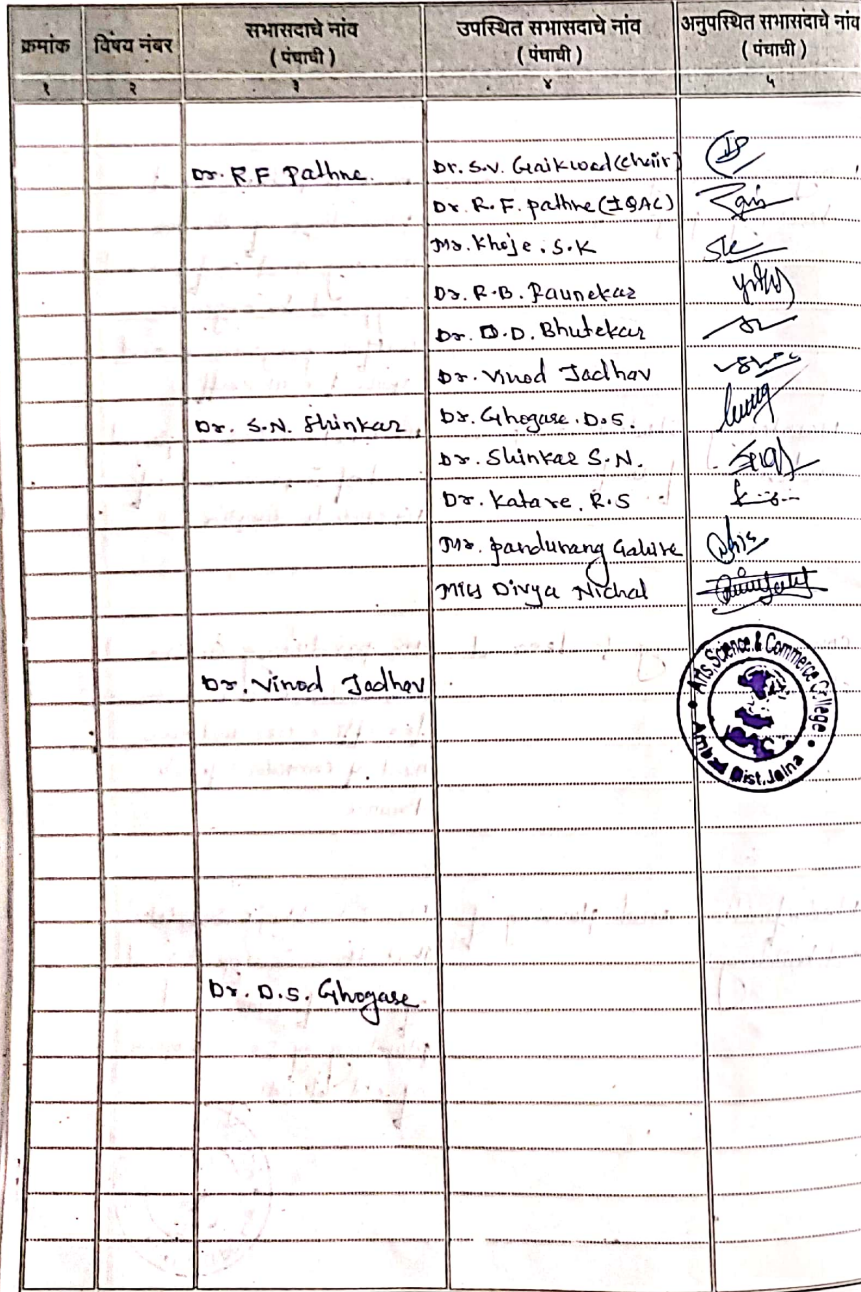 क्रमांक विषय नंबर सभासदाचे नांव उपस्थित सभासदाचे नांव अनुपस्थित सभासदाचे नांव
( पंचाची ) ( पंचाची ) ( पंचाची )
१ २ ३ ४ ५
Dr. R.F Pathne. Dr. S.V. Gaikwad (chair)
Dr. R.F. pathne (IQAC)
Mr. Khoje. S.K
Dr. R.B. Paunekar
Dr. D.D. Bhutekar
Dr. Vinod Jadhav
Dr. S.N. Shinkar Dr. Ghogase. D.S.
Dr. Shinkar S.N.
Dr. Katare. R.S
Mr. pandurang
Miss Divya Nichal
Dr. Vinod Jadhav
Arts, Science & Commerce College
Ambad Dist. Jalna
Dr. D.S. Ghogase